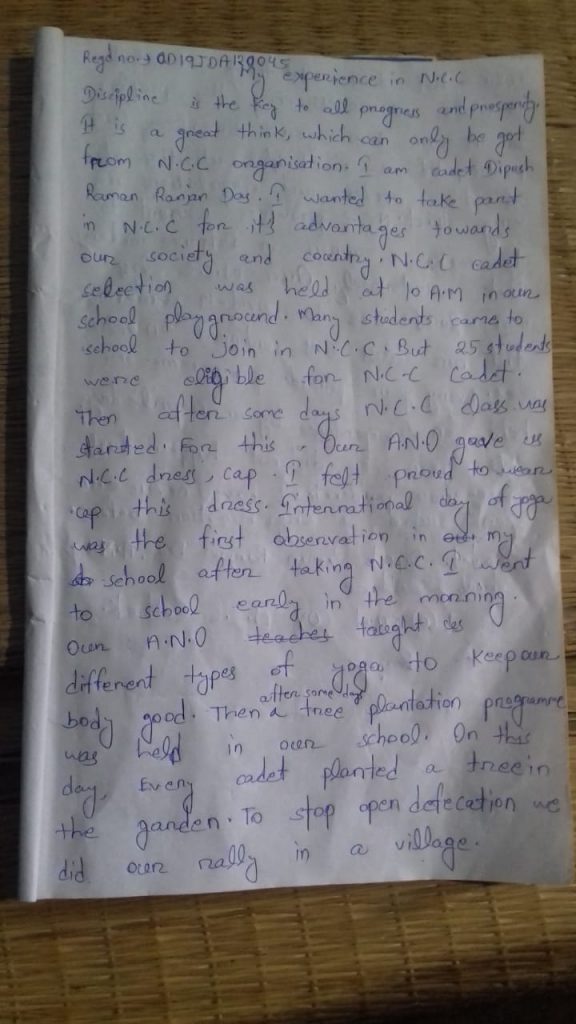 Regd no. → OD19JDA139045
My experience in N.C.C
Discipline is the key to all progress and prosperity.
It is a great think, which can only be got
from N.C.C organisation. I am cadet Dipesh
Raman Ranjan Das. I wanted to take part
in N.C.C for it's advantages towards
our society and country. N.C.C cadet
selection was held at 10 A.M in our
school playground. Many students came to
school to join in N.C.C. But 25 students
were eligible for N.C.C Cadet.
Then after some days N.C.C class was
started. For this, Our A.N.O gave us
N.C.C dress, cap. I felt proud to wear
cap this dress. International day of yoga
was the first observation in my
school after taking N.C.C. I went
to school early in the morning.
Our A.N.O teaches taught us
different types of yoga to keep our
body good. Then after some days a tree plantation programme
was held in our school. On this
day, Every cadet planted a tree in
the garden. To stop open defecation we
did our rally in a village.